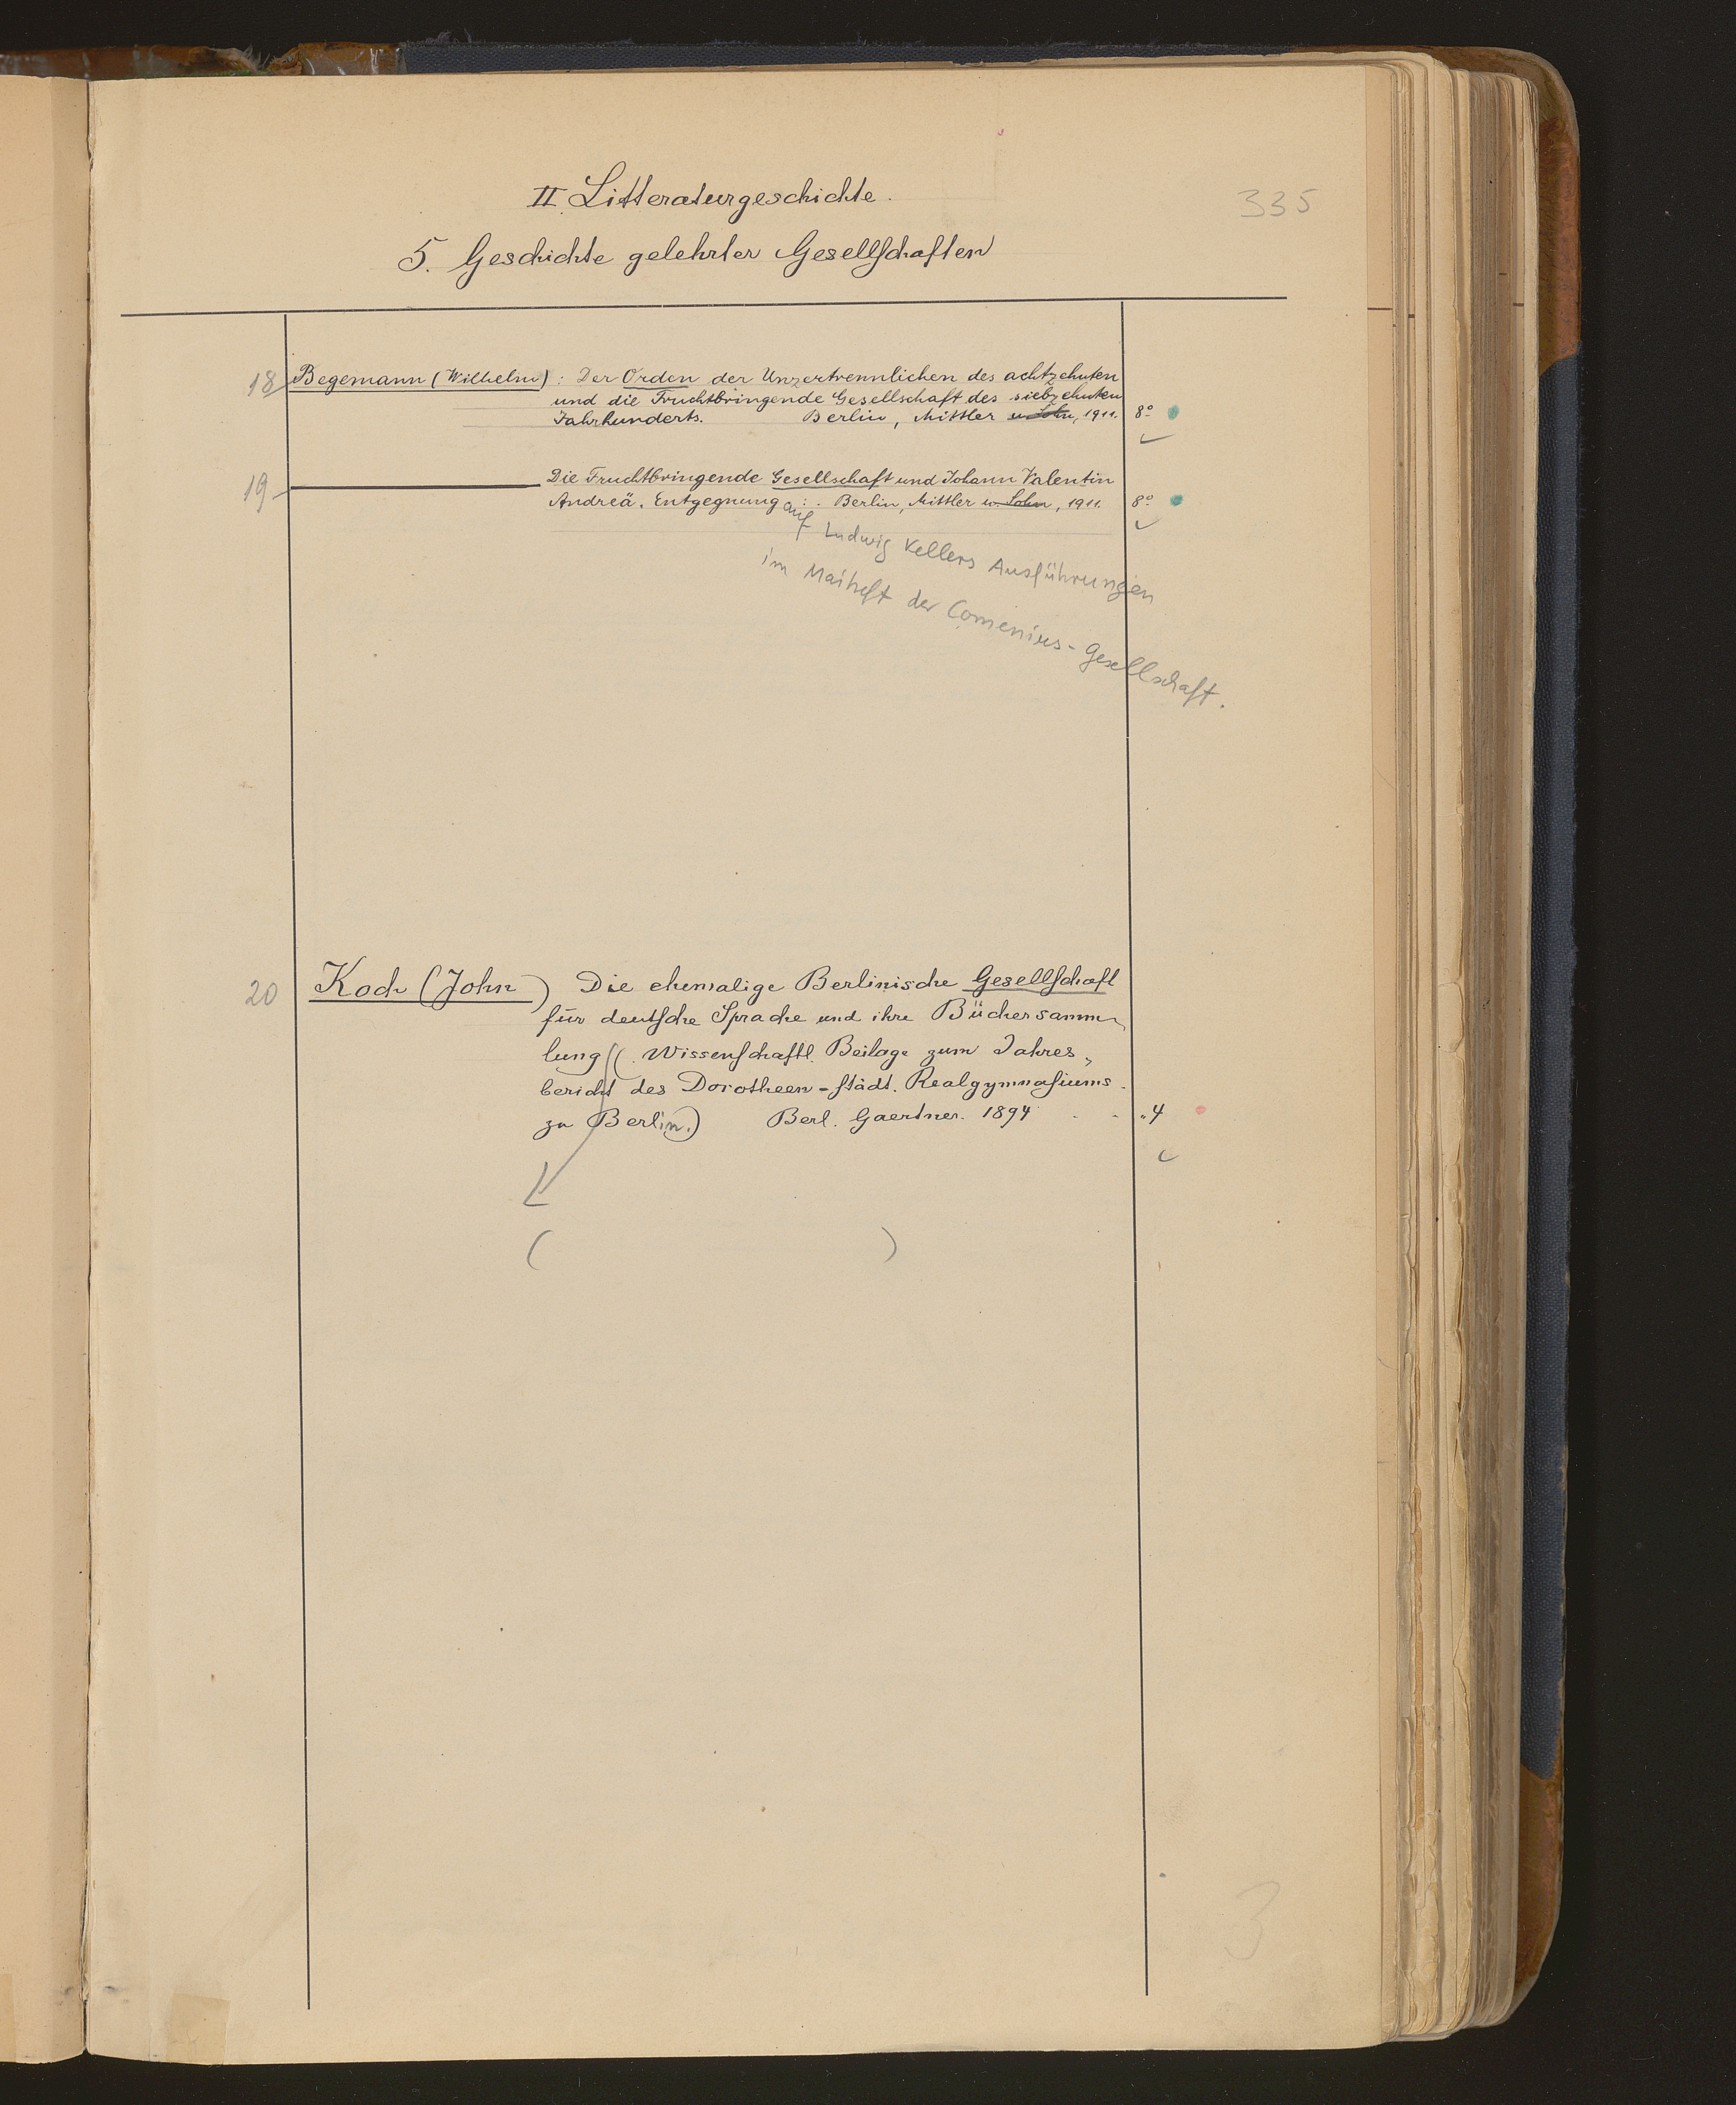 335
II. Litteraturgeschichte.
5. Geschichte gelehrter Gesellschaften
18 Begemann (Wilhelm): Der Orden der Unzertrennlichen des achtzehnten
und die Fruchtbringende Gesellschaft des siebzehnten
Jahrhunderts. Berlin, Mittler u. Sohn, 1911. 8°
19 Die Fruchtbringende Gesellschaft und Johann Valentin
Andreä. Entgegnung :. Berlin, Mittler u. Sohn, 1911. 8°
auf Ludwig Kellers Ausführungen
im Maiheft der Comenius-Gesellschaft.
20 Koch (John) Die ehemalige Berlinische Gesellschaft
für deutsche Sprache und ihre Büchersamm-
lung (Wissenschaftl. Beilage zum Jahres„
bericht des Dorotheen-städt. Realgymnasiums
zu Berlin.) Berl. Gaertner. 1894 . . „4
( )
3